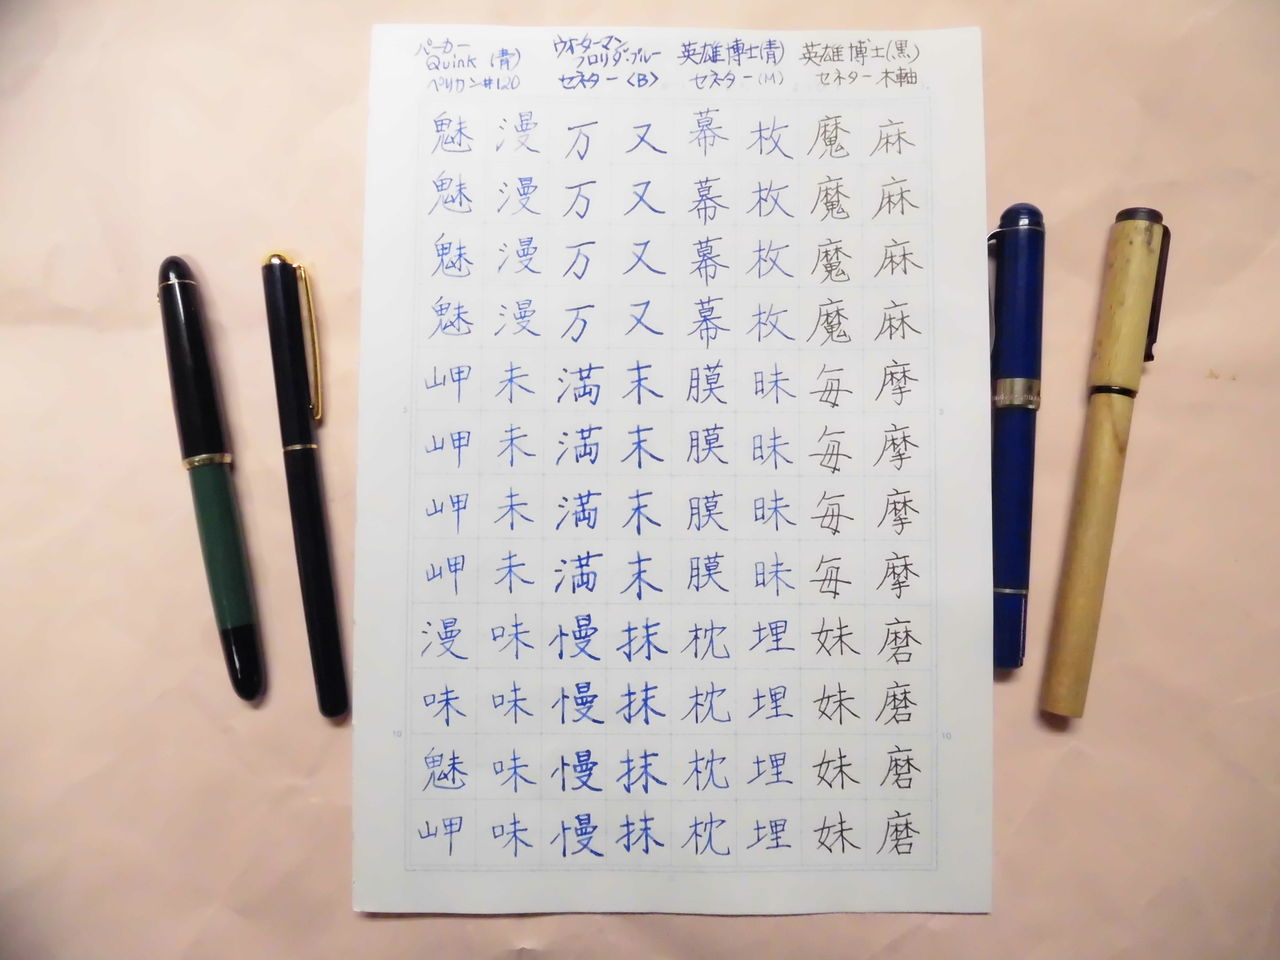 パーカー
Quink (青)
ペリカン#120
ウォーターマン
フロリダ・ブルー
セネター〈B〉
英雄博士(青)
セネター(M)
英雄博士(黒)
セネター木軸
魅 漫 万 又 幕 枚 魔 麻
魅 漫 万 又 幕 枚 魔 麻
魅 漫 万 又 幕 枚 魔 麻
魅 漫 万 又 幕 枚 魔 麻
岬 未 満 末 膜 昧 毎 摩
岬 未 満 末 膜 昧 毎 摩
岬 未 満 末 膜 昧 毎 摩
岬 未 満 末 膜 昧 毎 摩
漫 味 慢 抹 枕 埋 妹 磨
味 味 慢 抹 枕 埋 妹 磨
魅 味 慢 抹 枕 埋 妹 磨
岬 味 慢 抹 枕 埋 妹 磨
5
5
10
10